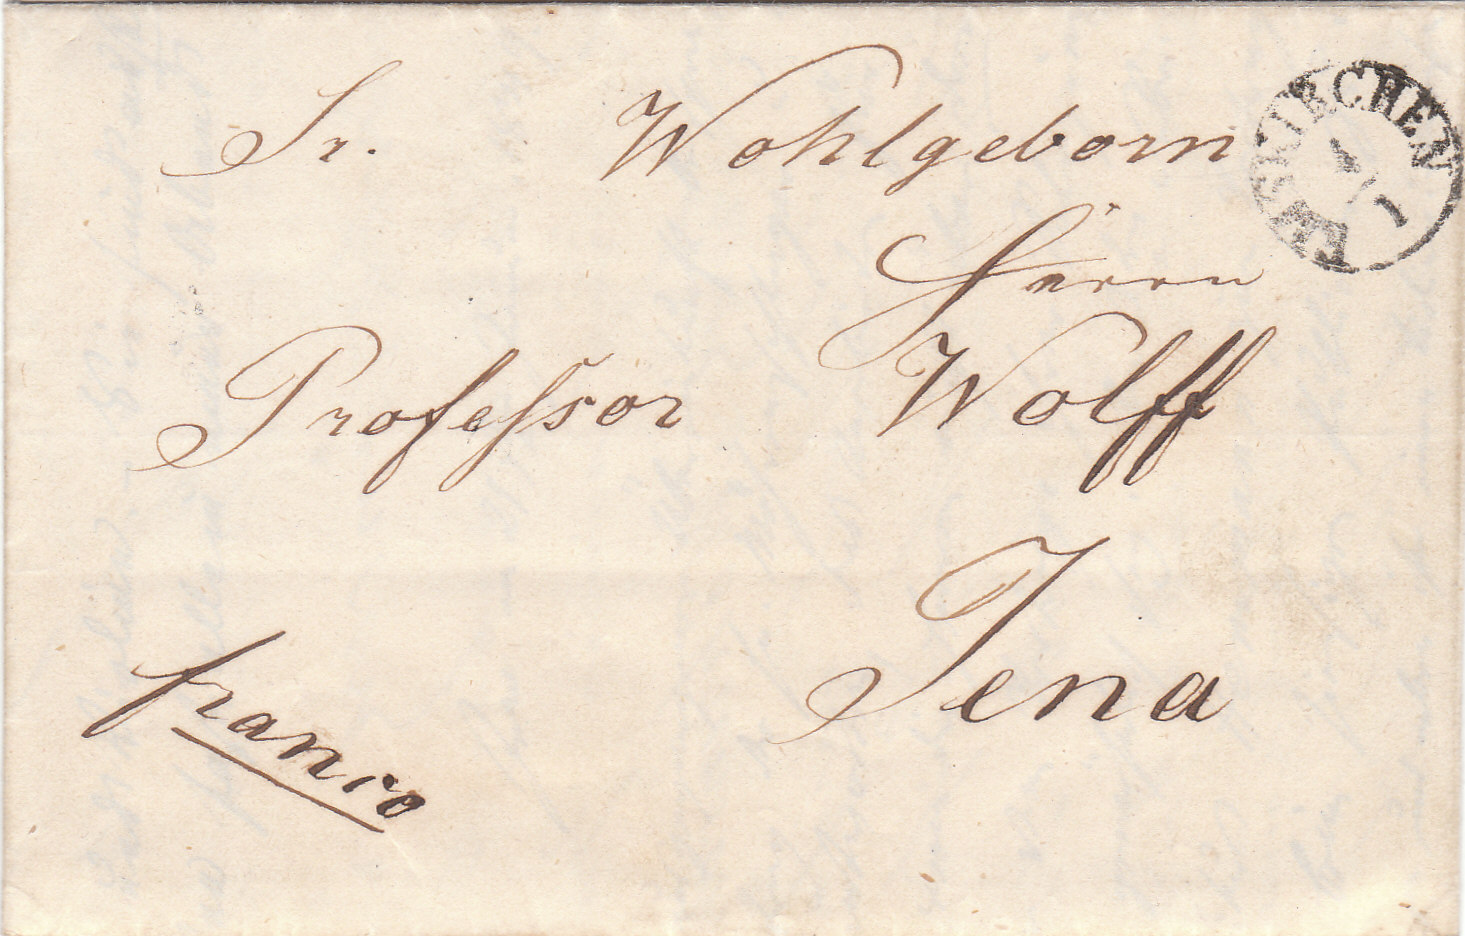 Sr. Wohlgeborn
Herrn
Professor Wolff
Jena
franco
EMSKIRCHEN